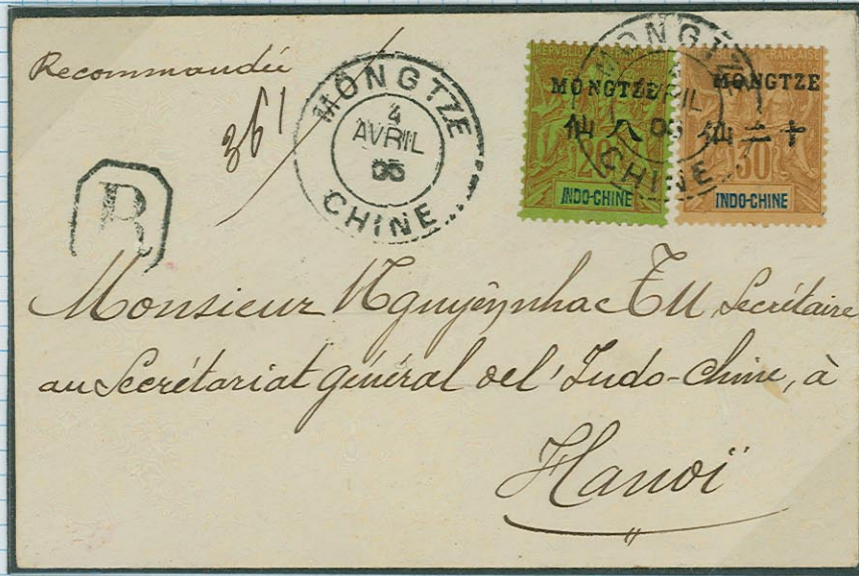 Recommandée
361
R
MONGTZE
4
AVRIL
05
CHINE
MONGTZE
AVRIL
05
CHINE
MONGTZE
仙八
20
INDO-CHINE
MONGTZE
仙二十
30
INDO-CHINE
Monsieur Nguyênnhac Tu, Secrétaire
au Secrétariat général de l'Indo-Chine, à
Hanoï